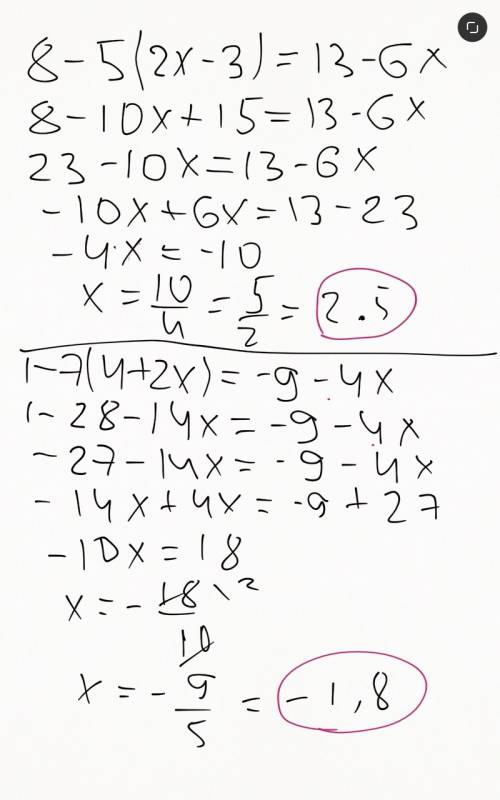 8 - 5(2x - 3) = 13 - 6x
8 - 10x + 15 = 13 - 6x
23 - 10x = 13 - 6x
- 10x + 6x = 13 - 23
- 4x = -10
x = 10/4 = 5/2 = 2.5
1 - 7(4 + 2x) = -9 - 4x
1 - 28 - 14x = -9 - 4x
- 27 - 14x = -9 - 4x
- 14x + 4x = -9 + 27
- 10x = 18
x = - 18\2/10
x = - 9/5 = -1,8